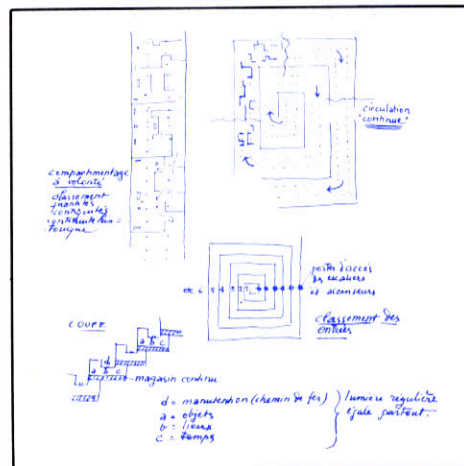 circulation
"continue"
compartimentage
à volonté
classement
continuité
portes d'accès
des escaliers
et ascenseurs
etc 6 5 4 3 2 1
classement des
entrées
COUPE
a b c
d
a b c
magasin continu
d = manutention (chemin de fer)
a = objets
b = lieux
c = temps
lumière régulière
égale partout.